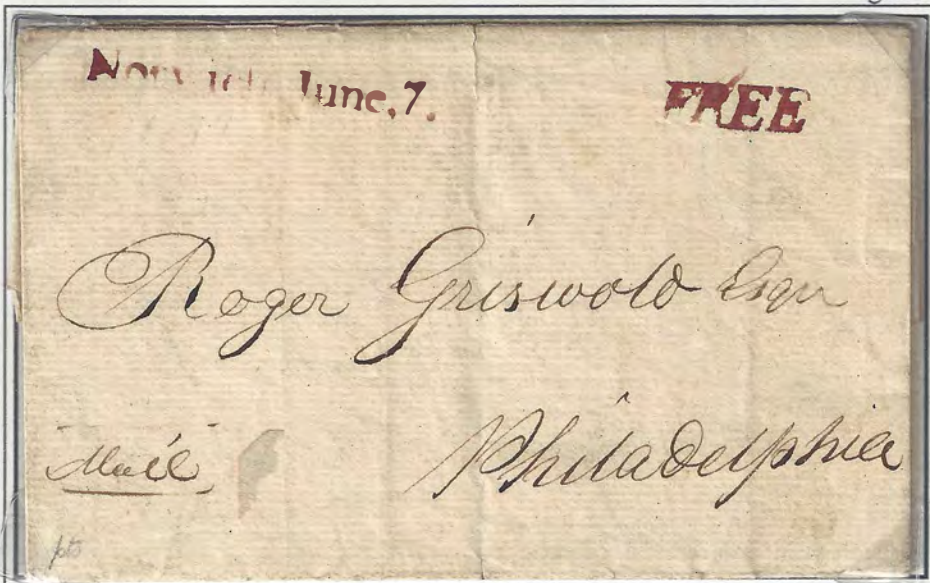 Norwich June, 7.
FREE
Roger Griswold Esqr
Philadelphia
Mail